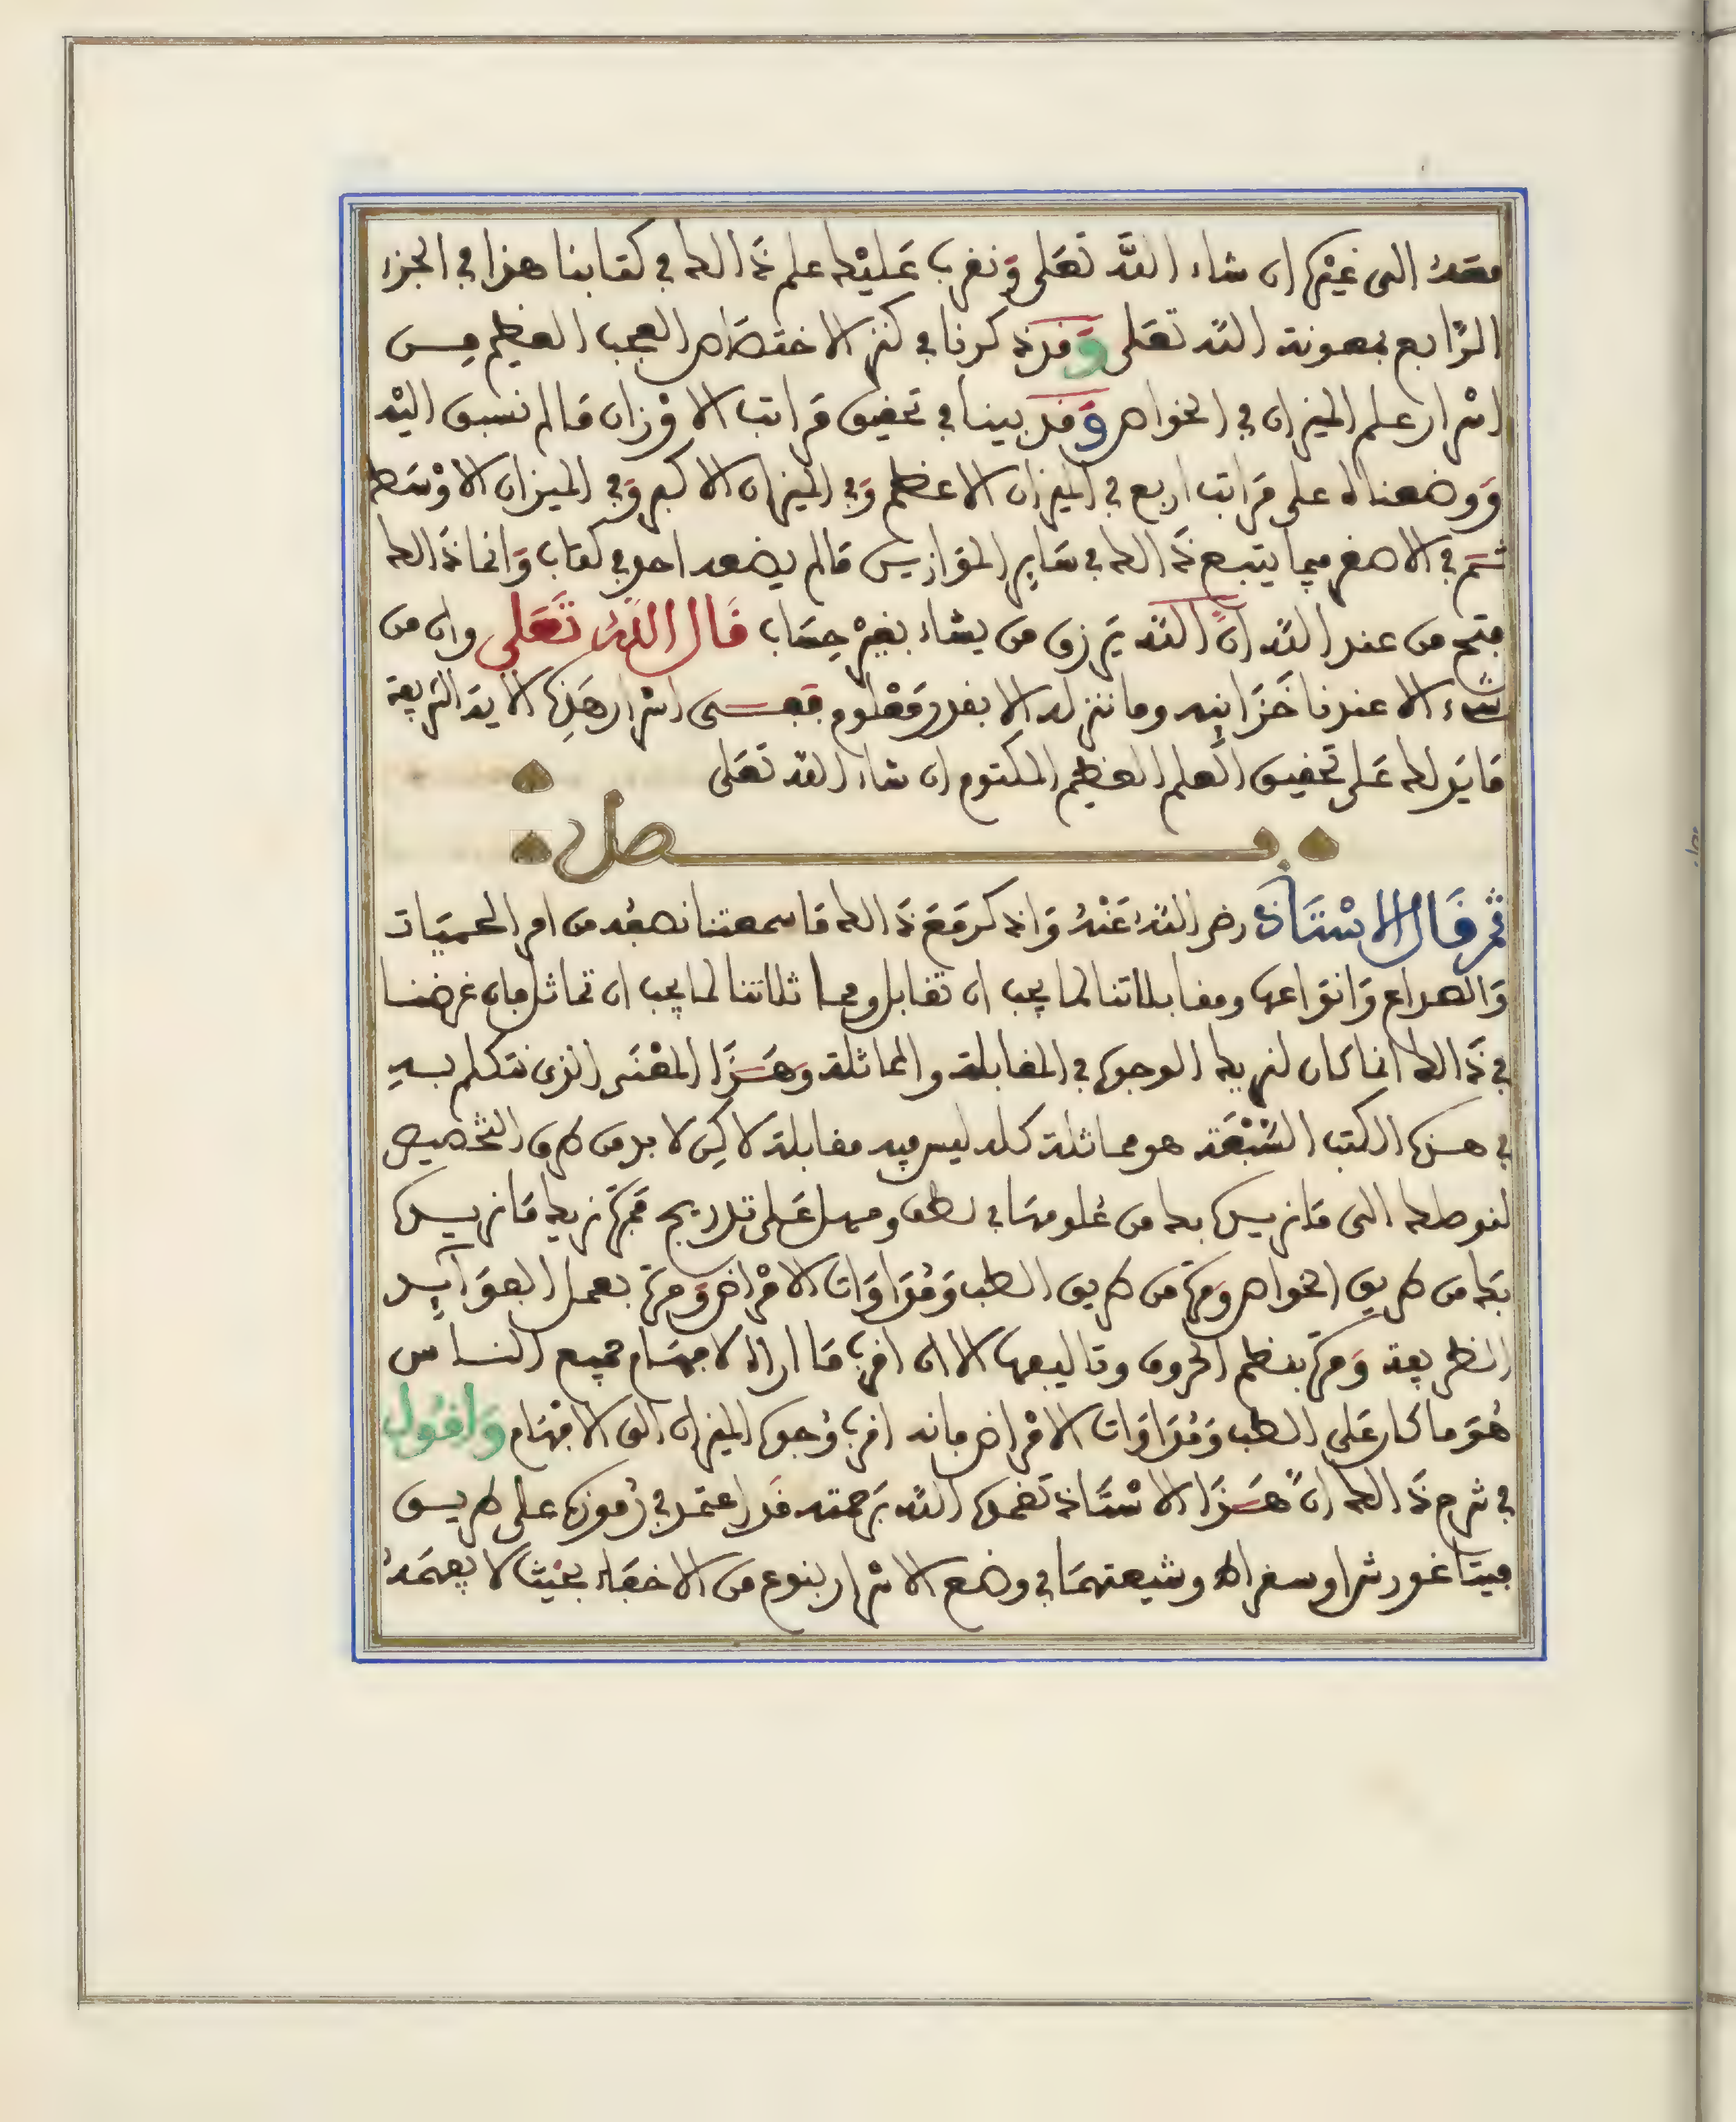 معه الى غيره ان شاء الله تعلى ونقرب عليك علم ذالك في كتابنا هذا في الجزء
الرّابع بمعونة الله تعلى وقد ذكرنا في كنز الاختصاص العجب العظيم مـن
اسرار علم الميزان في الخواص وقد بينا في تحقيق مَراتب الاوْزان مَا لم نسبق اليْه
وَوضعناه على مرَاتب اربع في الميزان الاعظم وَفي الميزان الاكبر وَفي الميزان الاوْسَط
ثـم في الاصغر فيما يتبع ذَالك في سَاير الموَازيـن مَا لم يضعه احد في كتاب وَانما ذَالك
فتح من عند الله انّ الله يَرزق من يشاء بغيْر حِسَاب قَال اللهُ تَعَلى وان من
شيء الا عندنا خَزَاينه وما ننزله الا بقدر مَعْلوم ففـي اسرار هَذِه الايَة الشريفة
مَا يَدلك عَلى تحقيق العلم العظيم المكتوم ان شاء الله تعَلى
فـصل
ثم قَال الاسْتَاذ رضي اللهُ عَنْهُ وَاذكر مَعَ ذَالك مَا سمعتنا نصفُه من امر الحميَات
وَالصداع وَانوَاعها ومقابلاتنا لما يجب ان تقابل ومماثلاتنا لما يجب ان تماثل فان غرضنـا
في ذَالك انما كان لنريك الوجوه في المقابلة والمماثلة وَهَـذَا المعْنَى الذي نتكلم بـه
في هـذه الكتب السّبْعَة هو مماثلة كله ليس فيه مقابلة لاكِن لا بد من طرق التخصيص
لنوصلك الى مَا نريـده بك من عُلومهَا في لطف ومهل عَلى تدريج فَمرّة نريك مَا نريـده
بكَ من طريق الخواص وَمرّة من طريق الطب وَمُدَاوَات الامْراض وَمرّة بعمل الفوَآيـد
الطريفة وَمرّة بنظم الحروف وتاليفها الا ان اقرب مَا اراه لافهَام جميع النـاس
هُوَ ما كان عَلى الطب وَمُدَاوَات الامْراض فانه اقرب وُجوه الميزان الى الافهَام وَاقُول
في شرح ذَالك انّ هَـذَا الاسْتَاذ تغمده الله بَرحمته قَد اعتمد في رُموزه على طريـق
فيتَاغورش او سقراط وشيعتهمَا في وضع الاسْرار بنوع من الاخفَاء بحيْث لا يفهمَهُ